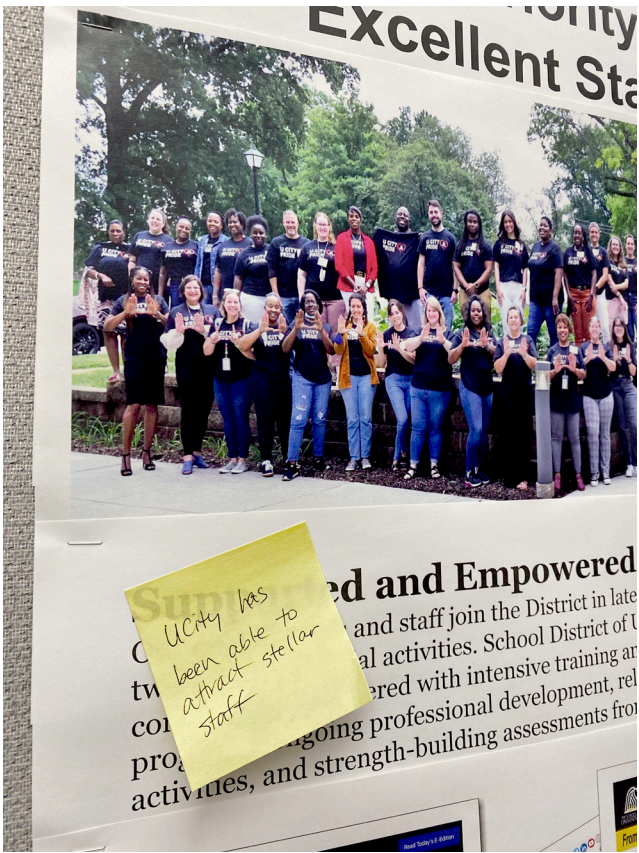 ority
Excellent Sta
U CITY
PRIDE
UCity has
been able to
attract stellar
staff
Supported and Empowered
and staff join the District in late
tw al activities. School District of U
con ered with intensive training an
prog ngoing professional development, rel
activities, and strength-building assessments from
Read Today's E-Edition
From